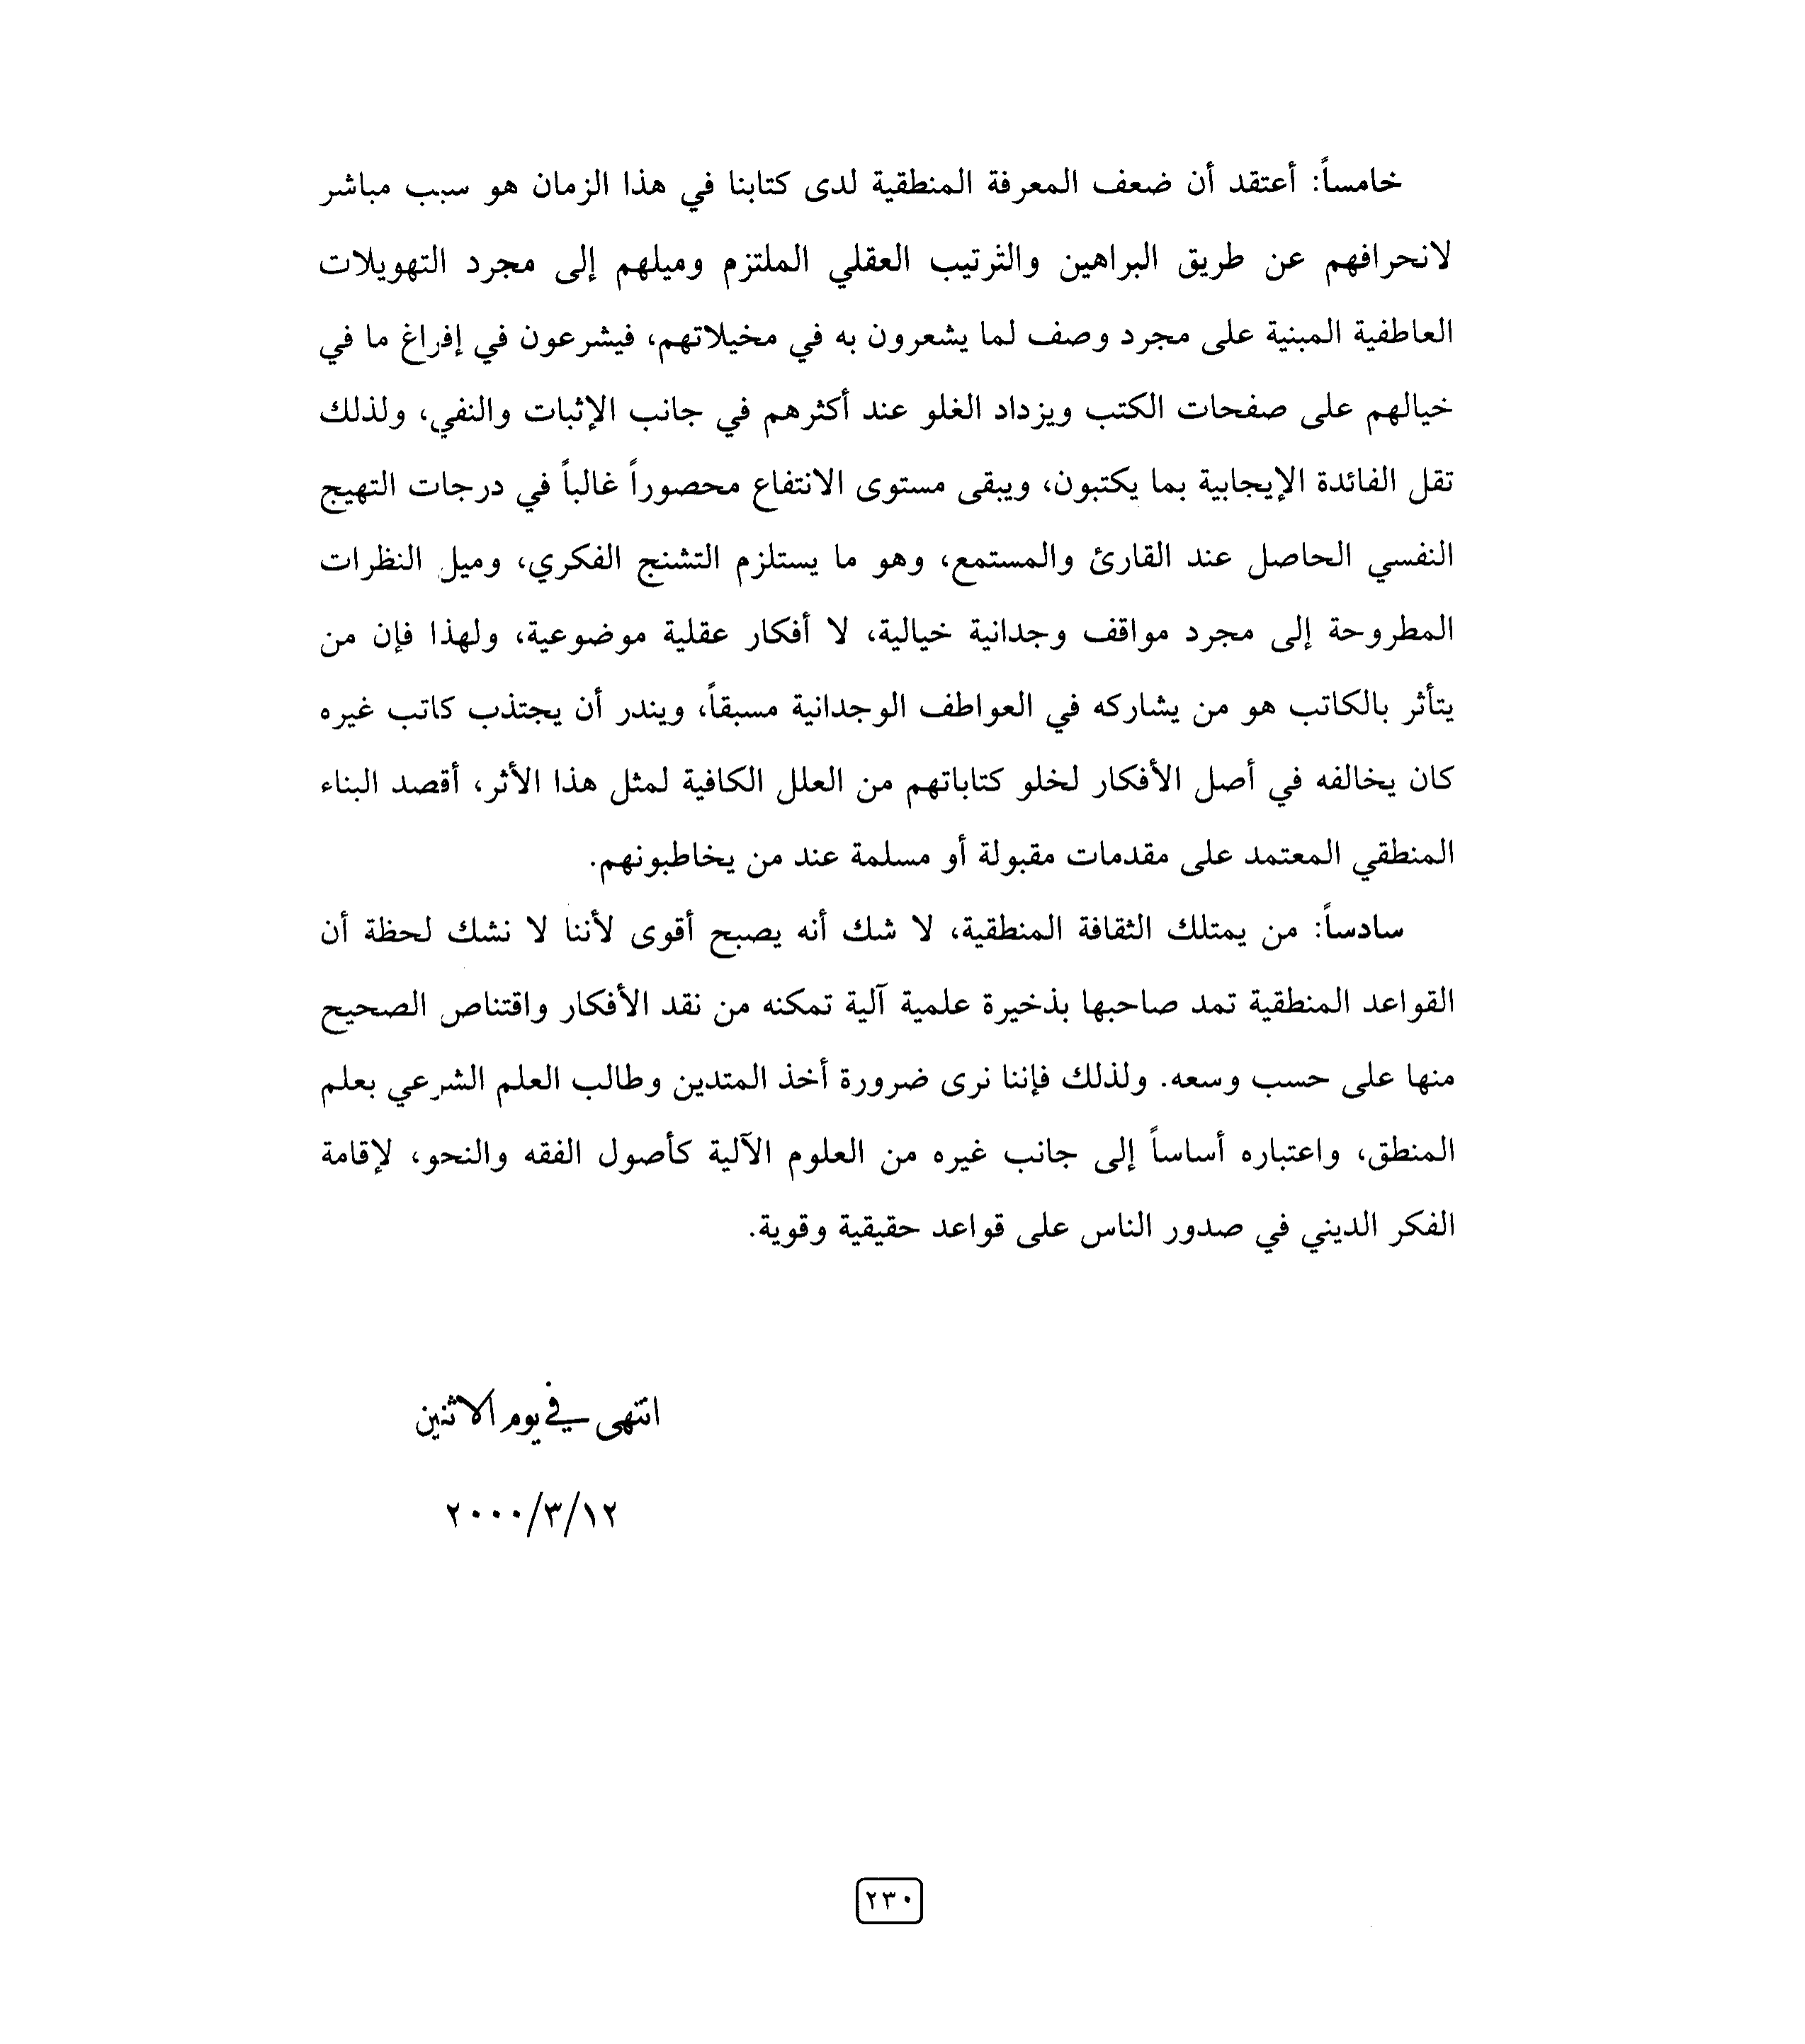 خامساً: أعتقد أن ضعف المعرفة المنطقية لدى كتابنا في هذا الزمان هو سبب مباشر
لانحرافهم عن طريق البراهين والترتيب العقلي الملتزم وميلهم إلى مجرد التهويلات
العاطفية المبنية على مجرد وصف لما يشعرون به في مخيلاتهم، فيشرعون في إفراغ ما في
خيالهم على صفحات الكتب ويزداد الغلو عند أكثرهم في جانب الإثبات والنفي، ولذلك
تقل الفائدة الإيجابية بما يكتبون، ويبقى مستوى الانتفاع محصوراً غالباً في درجات التهيج
النفسي الحاصل عند القارئ والمستمع، وهو ما يستلزم التشنج الفكري، وميل النظرات
المطروحة إلى مجرد مواقف وجدانية خيالية، لا أفكار عقلية موضوعية، ولهذا فإن من
يتأثر بالكاتب هو من يشاركه في العواطف الوجدانية مسبقاً، ويندر أن يجتذب كاتب غيره
كان يخالفه في أصل الأفكار لخلو كتاباتهم من العلل الكافية لمثل هذا الأثر، أقصد البناء
المنطقي المعتمد على مقدمات مقبولة أو مسلمة عند من يخاطبونهم.
سادساً: من يمتلك الثقافة المنطقية، لا شك أنه يصبح أقوى لأننا لا نشك لحظة أن
القواعد المنطقية تمد صاحبها بذخيرة علمية آلية تمكنه من نقد الأفكار واقتناص الصحيح
منها على حسب وسعه. ولذلك فإننا نرى ضرورة أخذ المتدين وطالب العلم الشرعي بعلم
المنطق، واعتباره أساساً إلى جانب غيره من العلوم الآلية كأصول الفقه والنحو، لإقامة
الفكر الديني في صدور الناس على قواعد حقيقية وقوية.
انتهى في يوم الاثنين
٢٠٠٠/٣/١٢
٢٣٠